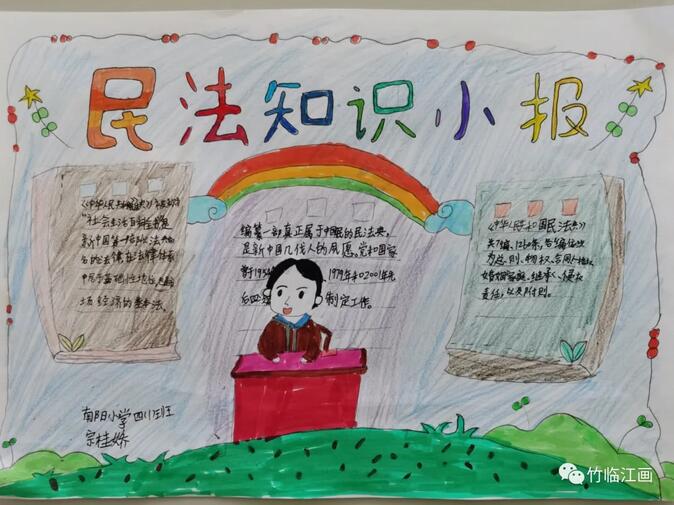 民法知识小报
社会生活百科全书是
新中国第一部以法典命
名的法律在法律体系
中居于基础性地位,也是市
场经济的基本法。
编纂一部真正属于中国民的民法典,
是新中国几代人的夙愿,党和国家
曾于1954
1979年和2001年先
后四
制定工作。
《中华人民共和国民法典》
共7编、1260条,各编依次
为总则、物权、合同、人格权、
婚姻家庭、继承、侵权
责任,以及附则。
南阳小学四(1)班
宗桂娇
竹临江画